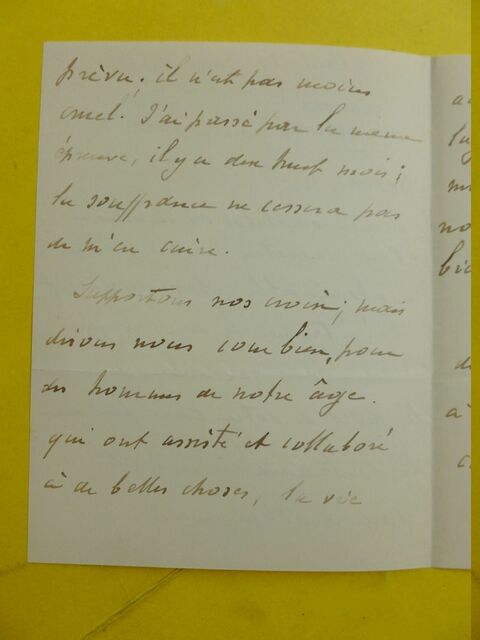 prévu. il n'est pas moins
cruel. J'ai passé par la même
épreuve, il y a dix huit mois;
la souffrance ne cessera pas
de m'en cuire.
Supportons nos croix; mais
disons nous combien, pour
des hommes de notre âge.
qui ont assisté et collaboré
à de belles choses, la vie
à